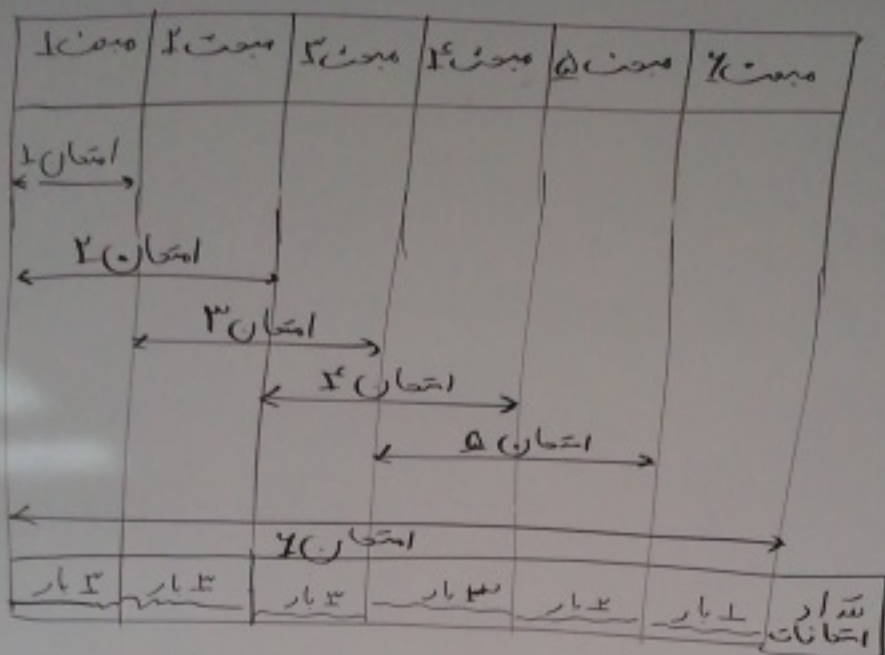 مبحث ۱ مبحث ۲ مبحث ۳ مبحث ۴ مبحث ۵ مبحث ۶
امتحان ۱
امتحان ۲
امتحان ۳
امتحان ۴
امتحان ۵
امتحان ۶
۳ بار ۳ بار ۳ بار ۳ بار ۲ بار ۱ بار تعداد امتحانات